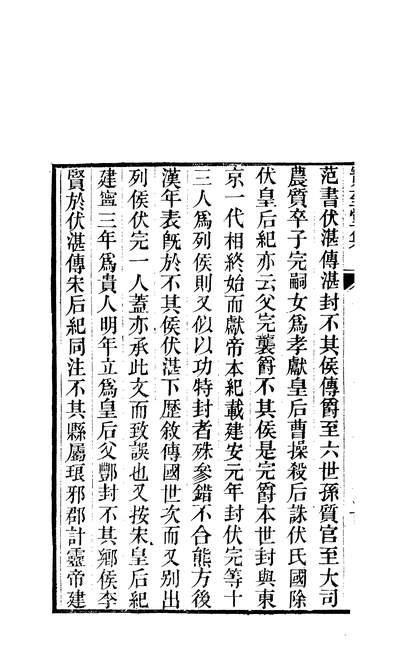 范書伏湛傳湛封不其侯傳爵至六世孫質官至大司
農質卒子完嗣女爲孝獻皇后曹操殺后誅伏氏國除
伏皇后紀亦云父完襲爵不其侯是完爵本世封與東
京一代相終始而獻帝本紀載建安元年封伏完等十
三人爲列侯則又似以功特封者殊參錯不合熊方後
漢年表旣於不其侯伏湛下歷敘傳國世次而又別出
列侯伏完一人蓋亦承此文而致誤也又按宋皇后紀
建寧三年爲貴人明年立爲皇后父酆封不其鄉侯李
賢於伏湛傳宋后紀同注不其縣屬琅邪郡計靈帝建